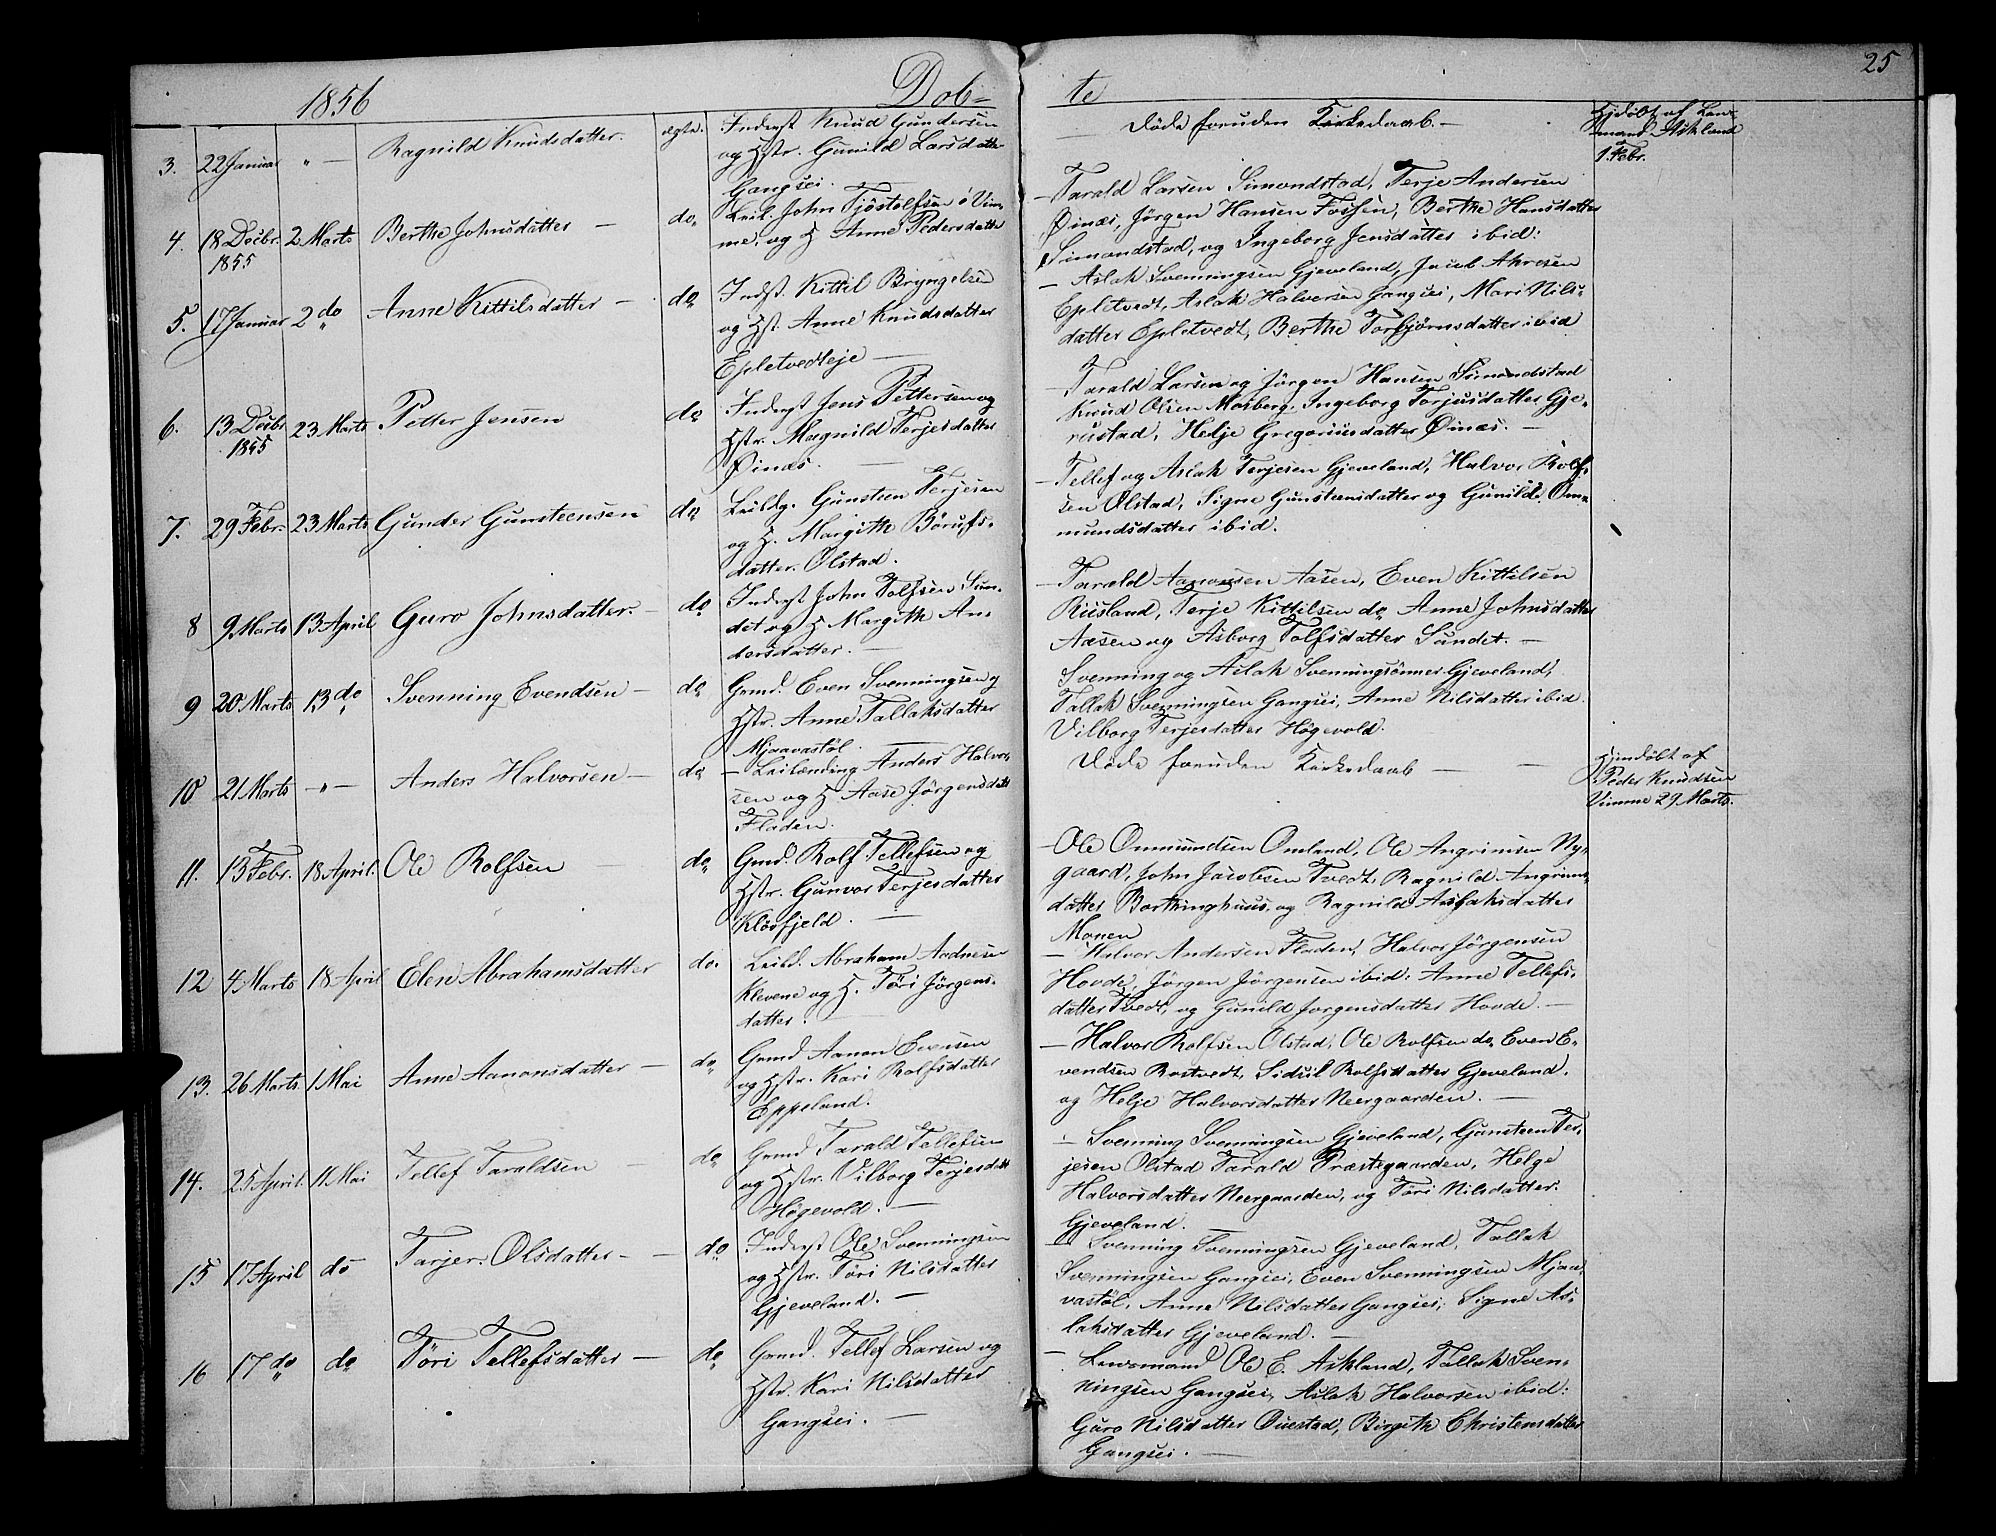 1856 Døb-
te 25
3. 22 Januar " — Ragnild Knudsdatter. ægte. Inderst Knud Gundersen
og Hstr. Gunild Larsdatter
Gangsei.
— Døde foruden Kirkedaab. —
Hjdøbt af Lens-
mand Askland
1 Febr.
4. 18 Decbr. 2 Marts Berthe Johnsdatter — do Leil. John Tjøstolfsen ö Vim-
1855
me, og H. Anne Pedersdatter
— Tarald Larsen Simonstad, Terje Andersen
Øinæs, Jørgen Hansen Fossen, Berthe Hansdatter
Simonstad, og Ingeborg Jensdatter ibid:
5. 17 Januar 2 do Anne Kittilsdatter — do Indst. Kittil Bryngelsen
og Hst. Anne Knudsdatter
Epletvedteje —
— Aslak Svenningsen Gjeveland, Jacob
Epletvedt, Aslak Halvorsen Gangsei, Mari Nils-
datter Epletvedt, Berthe Torbjørnsdatter ibid
6. 13 Decbr 23 Marts Petter Jensen do Inderst Jens Pettersen og
1855
Hstr. Magnild Terjesdatter
Øinæs. —
— Tarald Larsen og Jørgen Hansen Simonstad
Knud Olsen Mosberg, Ingeborg Torjusdatter Gje-
rustad, Helje Gregoriusdatter Øinæs. —
7. 29 Febr. 23 Marts Gunder Gunsteensen do Leildg. Gunsteen Terjesen
og H. Margith Børufs-
datter. Olstad.
— Tellef og Aslak Terjesen Gjeveland, Halvor Rolf-
sen Olstad, Signe Gunsteensdatter og Gunild Om-
mundsdatter ibid.
8 9 Marts 13 April Guro Johnsdatter. — do Inderst John Tolfsen Sun-
det og H Margith An-
dersdatter. —
— Tarald Aanonsen Aasen, Even Kittilsen
Riisland, Terje Kittilsen do Anne Johnsdatter
Aasen og Asborg Tolfsdatter Sundet. —
9 20 Marts 13 do Svenning Evendsen — do Grmd. Even Svenningsen og
Hstr. Anne Tallaksdatter
Mjaavastöl. —
Svenning og Aslak Svenningsønner Gjeveland,
Tallak Svenningsen Gangsei, Anne Nilsdatter ibid.
Vilborg Terjesdatter Høgevold.
10 21 Marts — " — Anders Halvorsen — do — Leilænding Anders Halvor-
sen og H. Aase Jørgensdatt
Fladen.
Døde foruden Kirkedaab — —
Hjemdøbt af
Peder Knudsen
Vimme 29 Marts.
11. 13 Febr. 18 April. Ole Rolfsen — do Grmd. Rolf Tellefsen og
Hstr. Gunvor Terjesdatter
Kløsfjeld. —
— Ole Ommundsen Omland, Ole Angrimsen Ny-
gaard, John Jacobsen Tvedt, Ragnild Angrims-
datter Borkinghuus, og Ragnild Aslaksdatter
Monen
12 4 Marts 18 April Elen Abrahamsdatter do Leild. Abraham Aadnesen
Klevene og H. Töri Jørgens-
datter. —
— Halvor Andersen Fladen, Halvor Jörgensen
Hovde, Jörgen Jörgensen ibid: Anne Tellefs-
datter Tvedt, og Gunild Jorgensdatter Hovde. —
13. 26 Marts 1 Mai Anne Aanonsdatter — do Grmd Aanon Evensen
og Hstr. Kari Rolfsdatter
Eppeland.
— Halvor Rolfsen Olstad, Ole Rolfsen do, Even E-
vendsen Rostvedt, Sidsil Rolfsdatter Gjeveland,
og Helje Halvorsdatter Neergaarden. —
14. 25 April. 11 Mai Tellef Taraldsen — do Grmd Tarald Tellefsen
og Hstr. Vilborg Terjesdatt
Høgevold. —
— Svenning Svenningsen Gjeveland, Gunsteen Ter-
jesen Olstad Tarald Præstegaarden, Helge
Halvorsdatter Neergaarden, og Töri Nilsdatter.
Gjeveland.
15 17 April do Tarjer. Olsdatter — do Inderst Ole Svenningsen
og Hstr. Töri Nilsdatter
Gjeveland. —
— Svenning Svenningsen Gjeveland, Tallak
Svenningsen Gangsei, Even Svenningsen Mjaa-
vastøl, Anne Nilsdatter Gangsei, Signe As-
laksdatter Gjeveland. —
16 17 do do Töri Tellefsdatter — do Grmd. Tellef Larsen og
Hstr. Kari Nilsdatter
Gangsei. —
— Lensmand Ole E. Askland, Tallak Sven-
ningsen Gangsei, Aslak Halvorsen ibid:
Guro Nilsdatter Duestad, Birgith Christensdatter
Gangsei. —